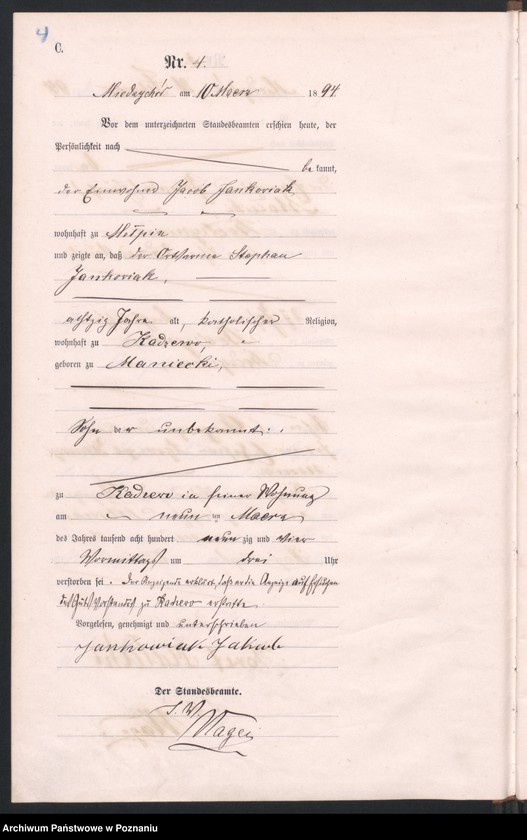 4
C.
Nr. 4.
am 10 Maerz 1894
Vor dem unterzeichneten Standesbeamten erschien heute, der
Persönlichkeit nach
be kannt,
der Einwohner Jacob Jankoviak
wohnhaft zu
und zeigte an, daß der Ortsarme Stephan
Jankoviak,
achtzig Jahre alt, katholischer Religion,
wohnhaft zu Kadzewo,
geboren zu Maniecki,
Sohn der unbekannt.
zu Kadzewo in seiner Wohnung
am neun ten Maerz
des Jahres tausend acht hundert neun zig und vier
Vormittags um drei Uhr
verstorben sei. Der Anzeigende erklärt, daß er die Anzeige auf
des Guts Vorstandes zu Kadzewo erstatte.
Vorgelesen, genehmigt und unterschrieben
Jankowiak Jakub
Der Standesbeamte.
I. V.
Archiwum Państwowe w Poznaniu